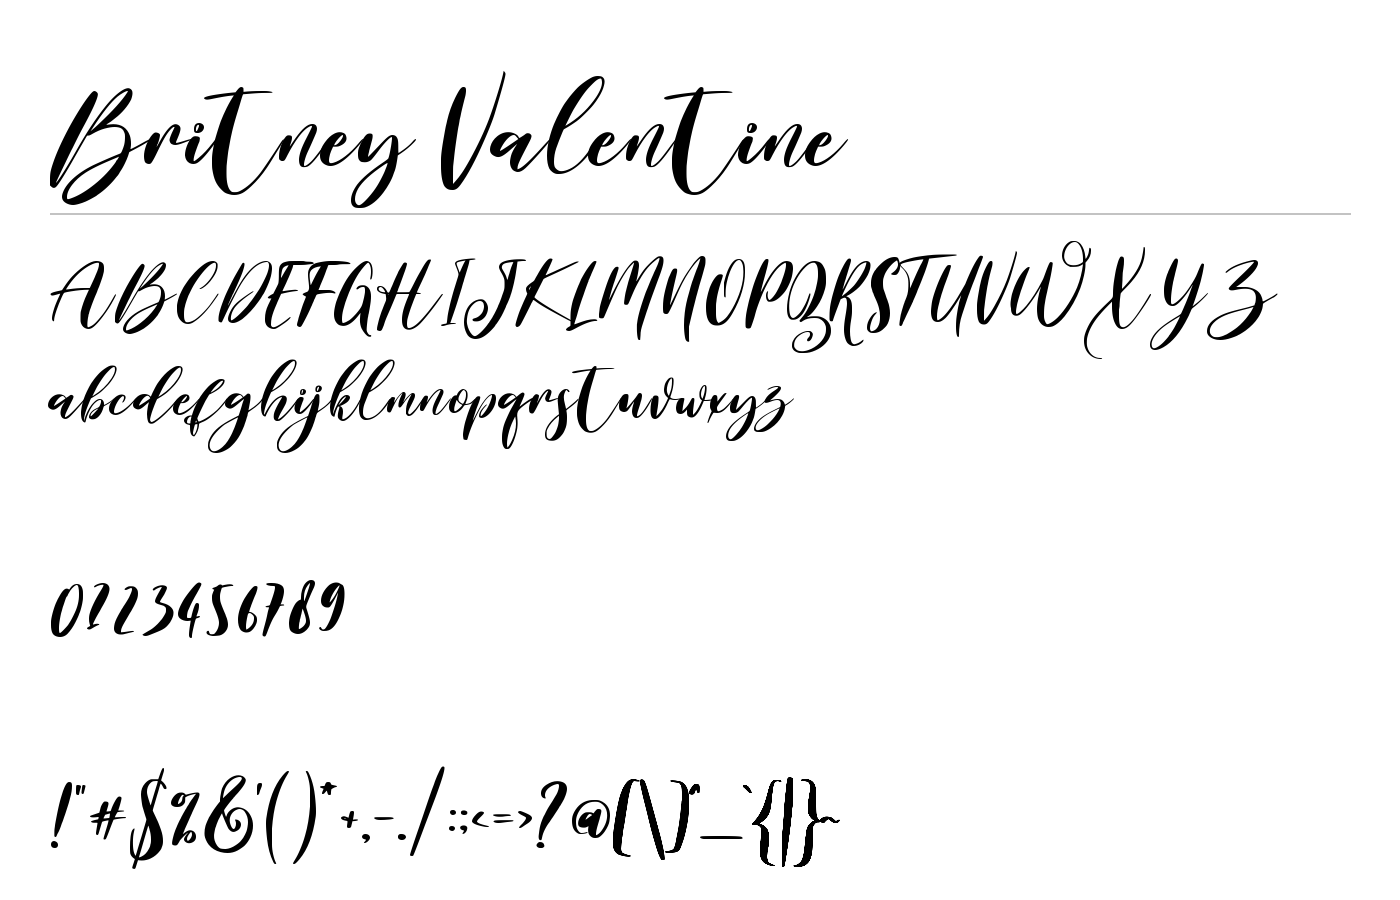 Britney Valentine
ABCDEFGHIJKLMNOPQRSTUVWXYZ
abcdefghijklmnopqrstuvwxyz
0123456789
!"#$%&'()*+,-./:;<=>?@[\]^_`{|}~